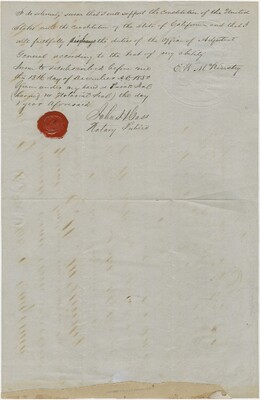 I do solemnly swear that I will support the Constitution of the United
States and the Constitution of the State of California and that I
will faithfully discharge the duties of the Office of Adjutant
General according to the best of my ability
Sworn to & subscribed before me
the day of December A.D. 1850
Given under my hand & Private Seal
having no Notarial Seal, the day
& year aforesaid
John
Notary Public
E. W. McKinstry